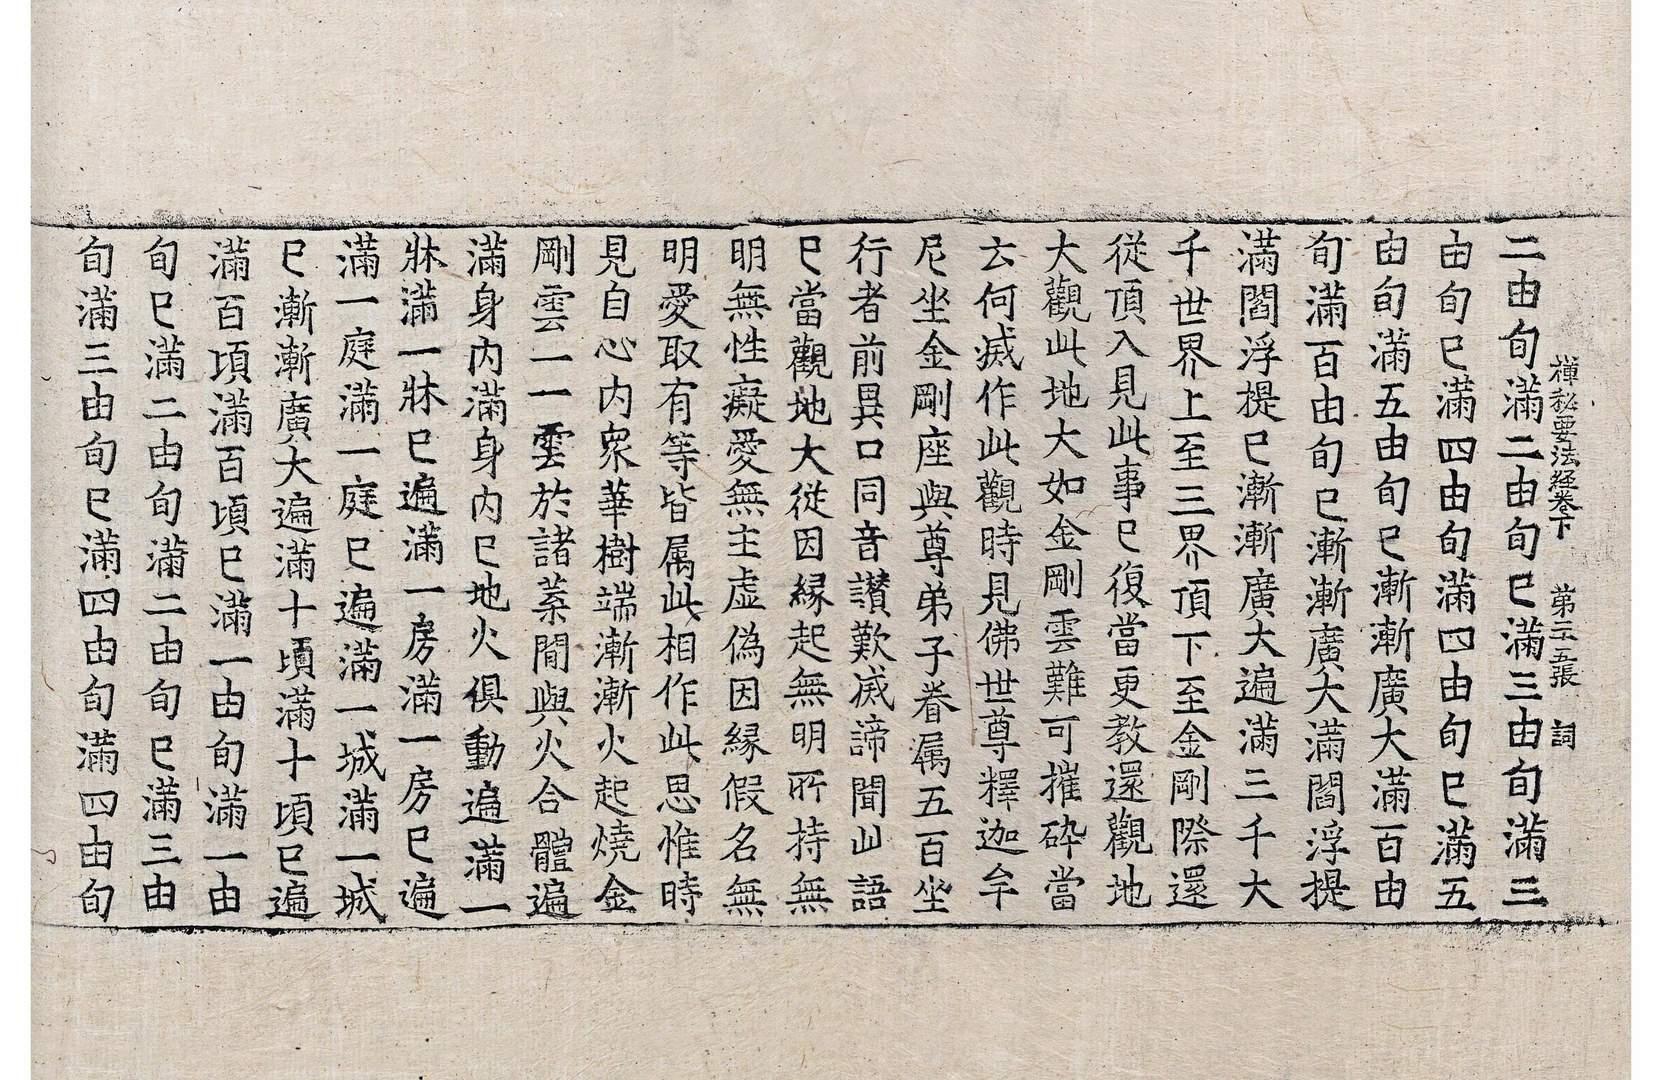 禪秘要法經卷下 第三五張 詞
二由旬滿二由旬已滿三由旬滿三
由旬已滿四由旬滿四由旬已滿五
由旬滿五由旬已漸漸廣大滿百由
旬滿百由旬已漸漸廣大滿閻浮提
滿閻浮提已漸漸廣大遍滿三千大
千世界上至三界頂下至金剛際還
從頂入見此事已復當更教還觀地
大觀此地大如金剛雲難可摧碎當
云何滅作此觀時見佛世尊釋迦牟
尼坐金剛座與尊弟子眷属五百坐
行者前異口同音讃歎滅諦聞此語
已當觀地大從因緣起無明所持無
明無性癡愛無主虛偽因緣假名無
明愛取有等皆属此相作此思惟時
見自心内眾華樹端漸漸火起燒金
剛雲一一雲於諸蓁間與火合體遍
滿身内滿身内已地火俱動遍滿一
牀滿一牀已遍滿一房滿一房已遍
滿一庭滿一庭已遍滿一城滿一城
已漸漸廣大遍滿十頃滿十頃已遍
滿百頃滿百頃已滿一由旬滿一由
旬已滿二由旬滿二由旬已滿三由
旬滿三由旬已滿四由旬滿四由旬